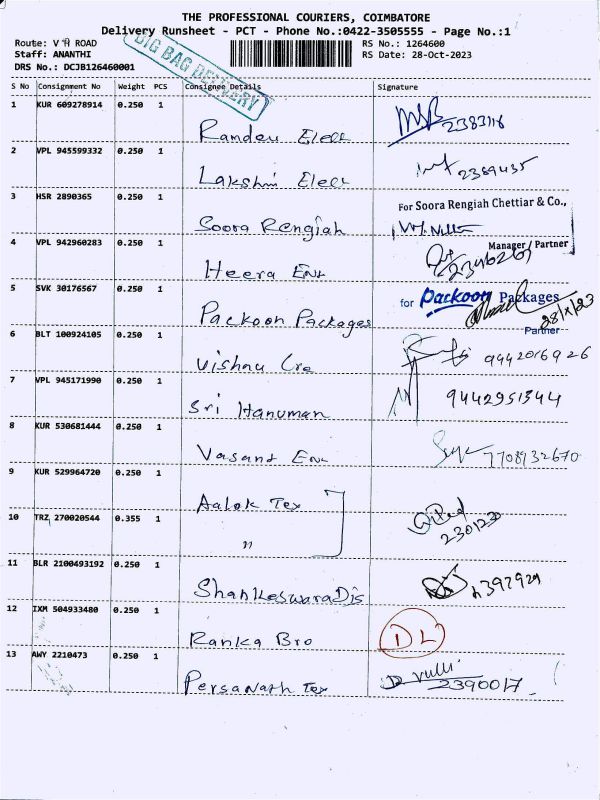 THE PROFESSIONAL COURIERS, COIMBATORE
Delivery Runsheet - PCT - Phone No.:0422-3505555 - Page No.:1
Route: V H ROAD
RS No.: 1264600
Staff: ANANTHI
RS Date: 28-Oct-2023
DRS No.: DCJB126460001
BIG BAG DELIVERY
S No Consignment No Weight PCS Consignee Details Signature
1 KUR 609278914 0.250 1
Ramdev Elect 2383116
2 VPL 945599332 0.250 1
Lakshmi Elect 2389435
3 HSR 2890365 0.250 1
For Soora Rengiah Chettiar & Co.,
Soora Rengiah
Manager / Partner
4 VPL 942960283 0.250 1
Heera Ent
5 SVK 30176567 0.250 1
for Packoon Packages
Packoon Packages 28/X/23
Partner
6 BLT 100924105 0.250 1
Vishnu Cre 9442016926
7 VPL 945171990 0.250 1
Sri Hanuman 9442951344
8 KUR 530681444 0.250 1
Vasant Ent 7708932670
9 KUR 529964720 0.250 1
Aalok Tex
10 TRZ 270020544 0.355 1
"
11 BLR 2100493192 0.250 1
Shankeswara Dis 2392929
12 IXM 504933480 0.250 1
Ranka Bro DL
13 AWY 2210473 0.250 1
Persanath Tex 2390017